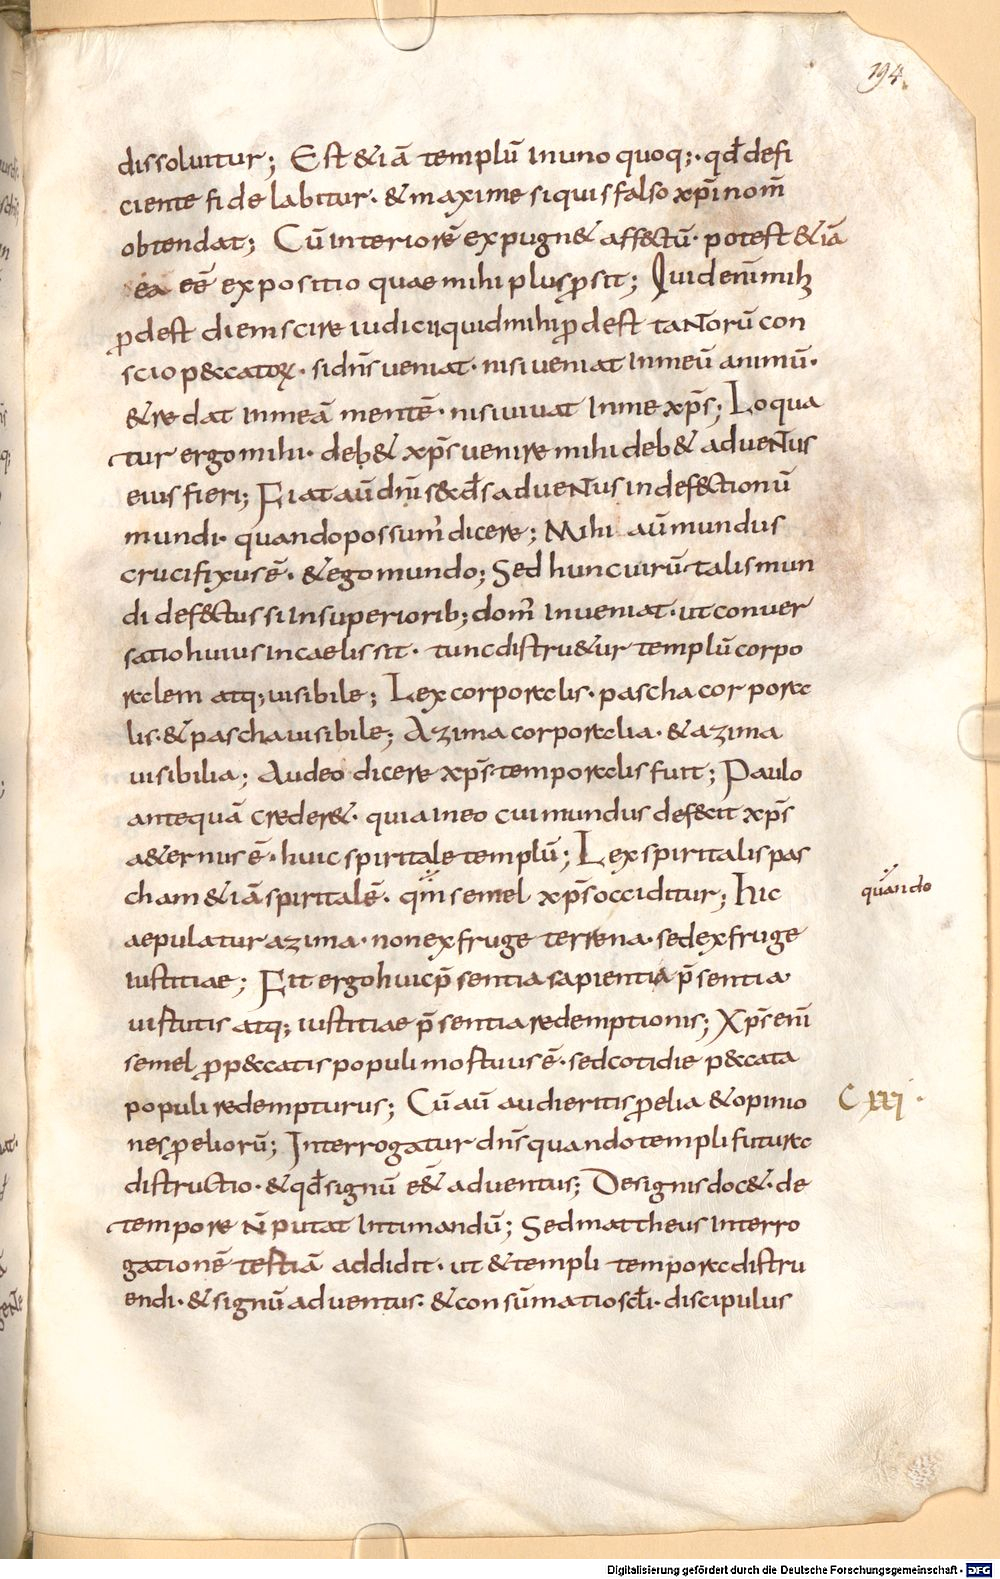 194.
dissoluitur; Est &iā templū inuno quoq;· qđ defi
ciente fide labitur· & maxime siquis falso xp̄i nom̄
obtendat; Cū interiorē expugn& aff&ctū· potest &iā
ea eē expositio quae mihi plus ꝑsit; Quid enī mihi
ꝓdest diem scire iudicii quid mihi ꝓdest tantorū con
scio p&ccatoꝝ· si dn̄s ueniat· nisi ueniat in meū animū·
& redat in meā mentē· nisi uiuat in me xp̄s; Loqua
tur ergo mihi· deb& xp̄s uenire mihi deb& aduentus
eius fieri; Fiat aū dn̄i s&cd̄s aduentus in def&ctionū
mundi· quando possum' dicere; Mihi aū mundus
crucifixus ē· & ego mundo; Sed hunc uirū talis mun
di def&ctus si in superiorib; dom̄ inueniat· ut conuer
satio huius in caelis sit· tunc distru&ur templū corpo
ralem atq; uisibile; Lex corporalis· pascha corpora
lis· & pascha uisibile; Azima corporalia· & azima
uisibilia; Audeo dicere xp̄s temporalis fuit; Paulo
antequā creder&· quia in eo cui mundus defecit xp̄s
a&ernus ē· huic spiritale templū; Lex spiritalis pas
cham &iā spiritalē· qm̄ semel xp̄s occiditur; hic
quando
aepulatur azima· non ex fruge terrena· sed ex fruge
iustitiae; Fit ergo huic p̄sentia sapientia p̄sentia
uirtutis atq; iustitiae p̄sentia redemptionis; Xp̄s enī
semel ꝓ p&ccatis populi mortuus ē· sed cotidie p&cata
populi redempturus; Cū aū audieritis ꝓelia & opinio
C xxi·
nes ꝓeliorū; Interrogatur dn̄s quando templi futura
distructio· & qđ signū e&̄ aduentus; De signis doc&· de
tempore n̄ putat intimandū; Sed mattheus interro
gationē tertiā addidit· ut & templi tempora distru
endi· & signū aduentus· & consūmatio scl̄i· discipulus
Digitalisierung gefördert durch die Deutsche Forschungsgemeinschaft - DFG